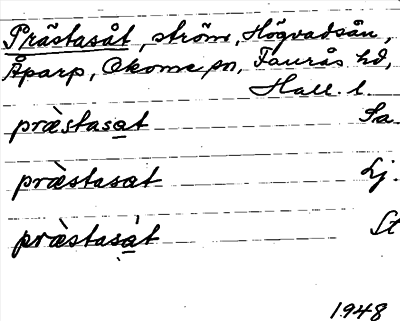 Prästasåt, ström, Högvadsån,
Åparp, Okome sn, Faurås hd,
Hall. l.
præ̀stasat Sa
præ̀stasat Lj.
præ̀stasát St
1948